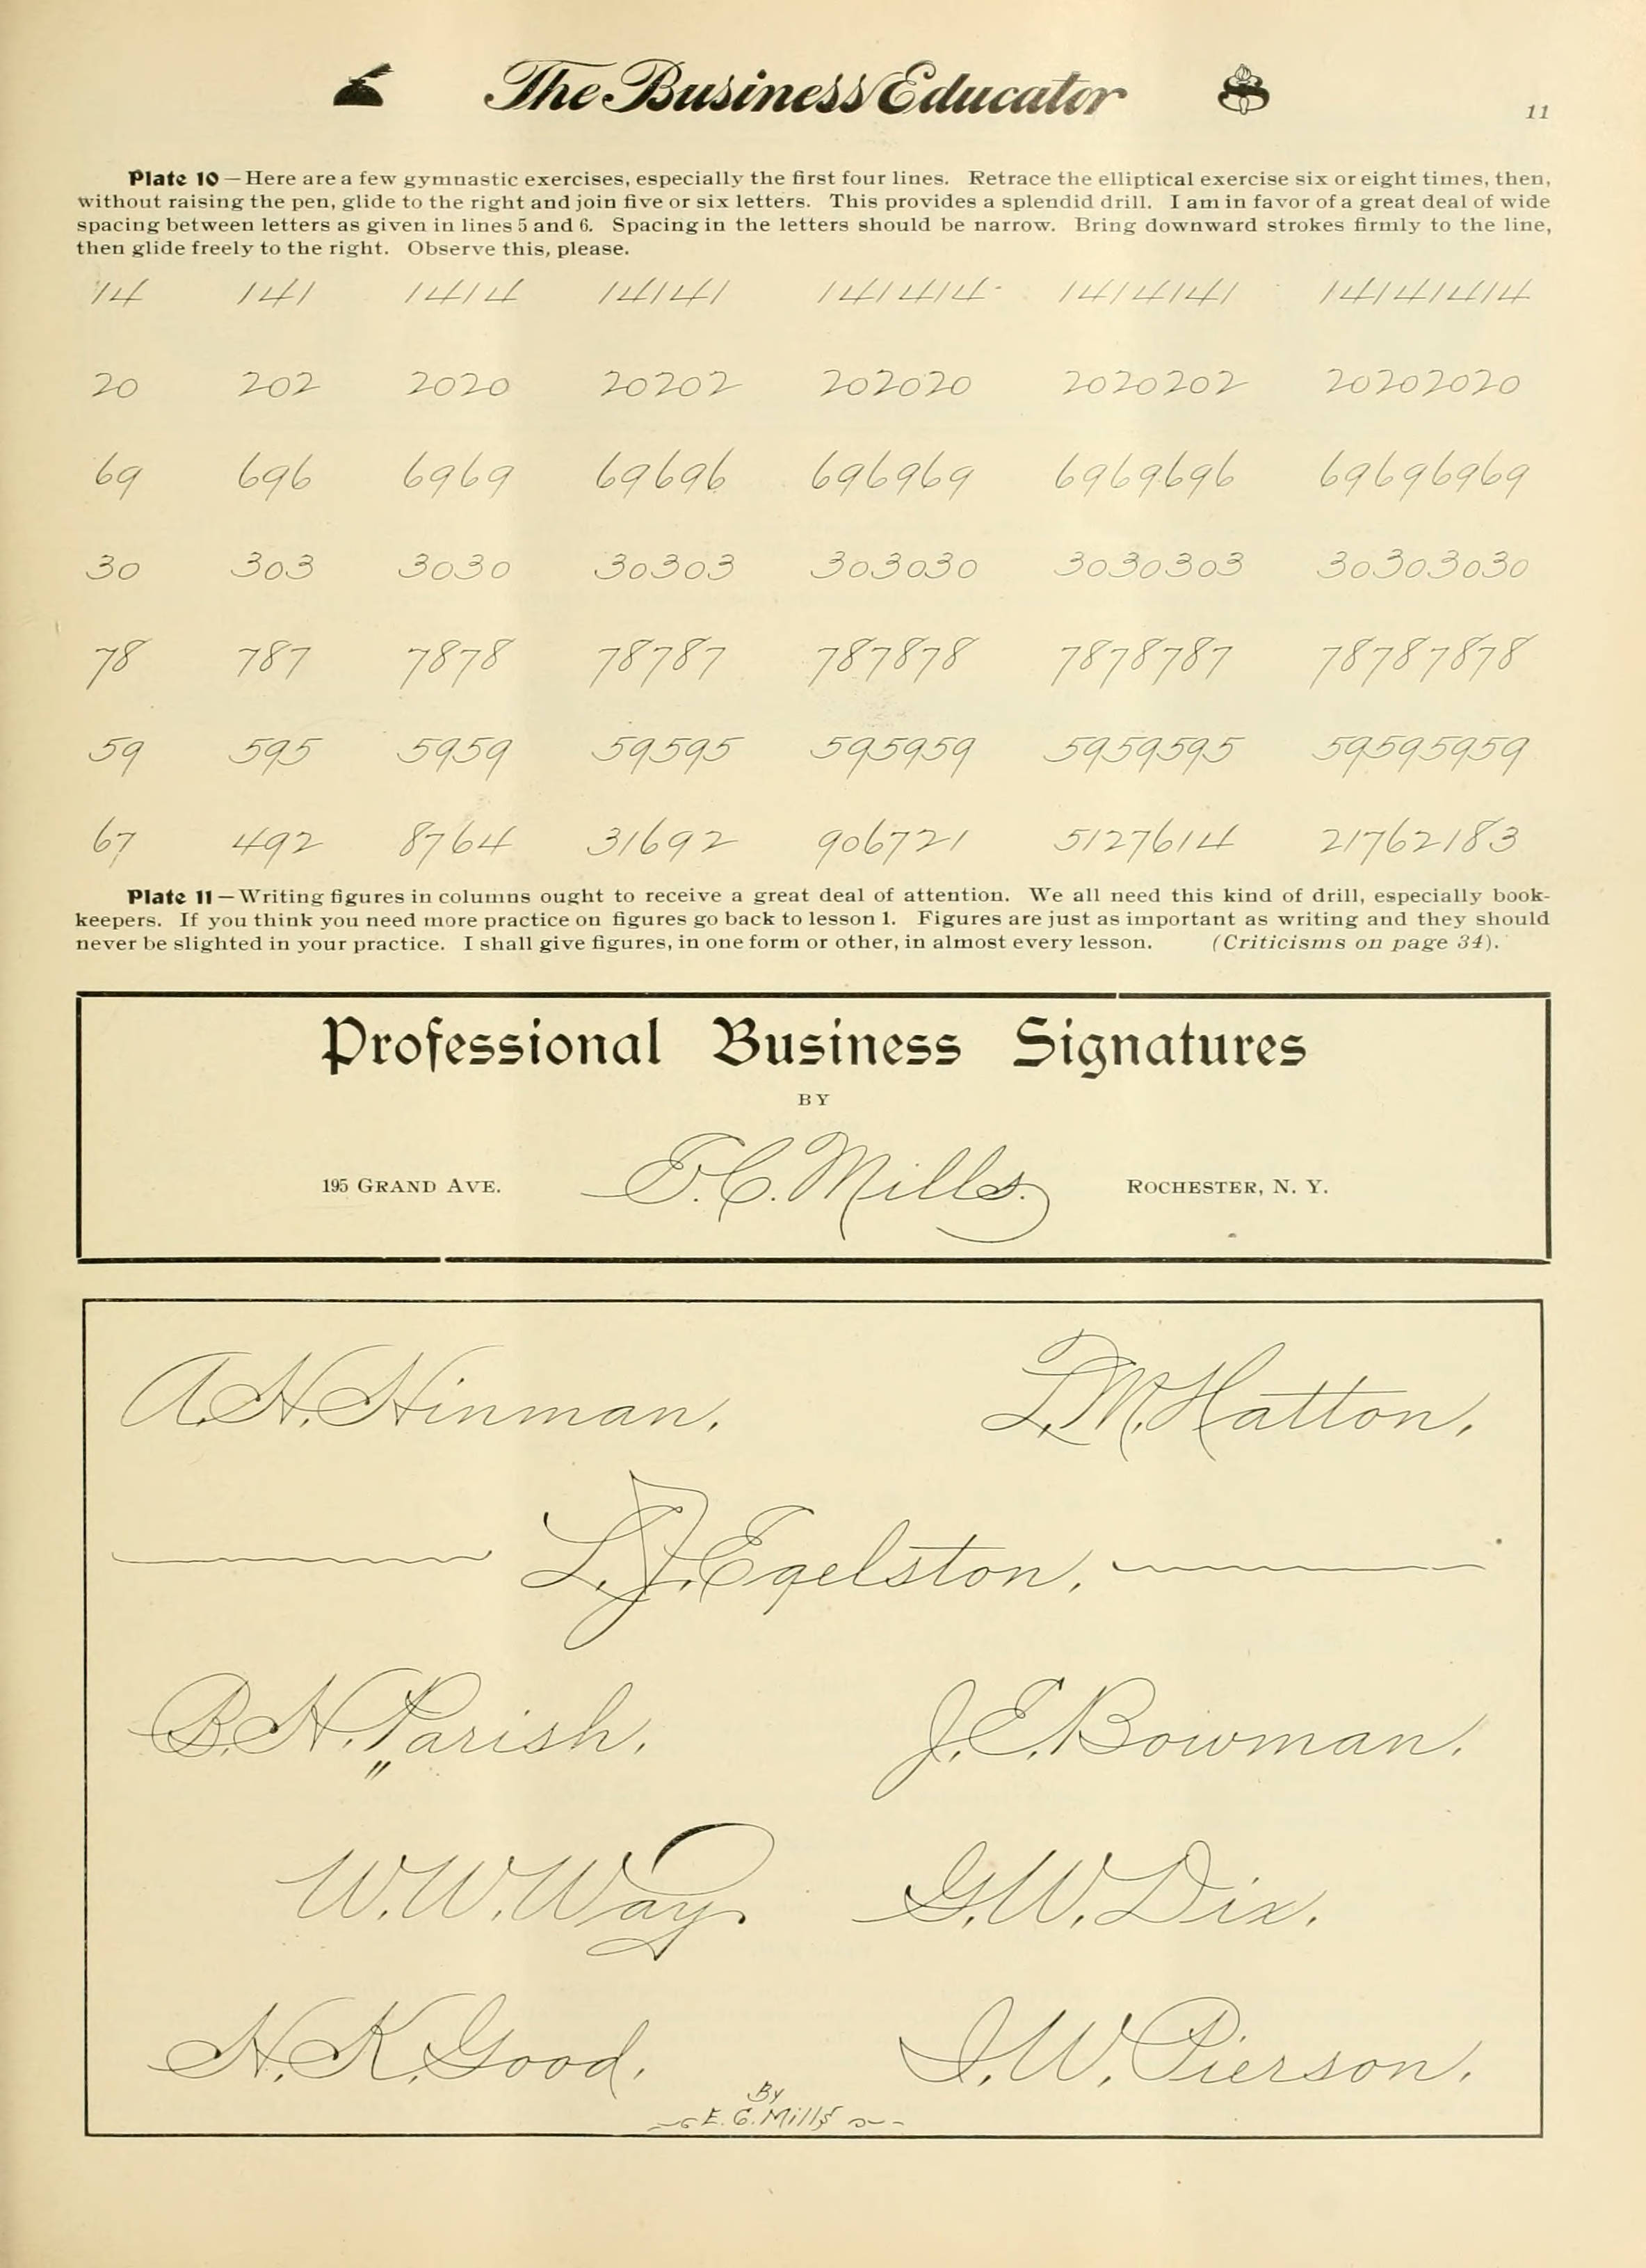 The Business Educator
11
Plate 10 — Here are a few gymnastic exercises, especially the first four lines. Retrace the elliptical exercise six or eight times, then,
without raising the pen, glide to the right and join five or six letters. This provides a splendid drill. I am in favor of a great deal of wide
spacing between letters as given in lines 5 and 6. Spacing in the letters should be narrow. Bring downward strokes firmly to the line,
then glide freely to the right. Observe this, please.
14 141 1414 14141 141414 1414141 14141414
20 202 2020 20202 202020 2020202 20202020
69 696 6969 69696 696969 6969696 69696969
30 303 3030 30303 303030 3030303 30303030
78 787 7878 78787 787878 7878787 78787878
59 595 5959 59595 595959 5959595 59595959
67 492 8764 31692 906721 5127614 21762183
Plate 11 — Writing figures in columns ought to receive a great deal of attention. We all need this kind of drill, especially book-
keepers. If you think you need more practice on figures go back to lesson 1. Figures are just as important as writing and they should
never be slighted in your practice. I shall give figures, in one form or other, in almost every lesson. (Criticisms on page 34).
Professional Business Signatures
BY
195 GRAND AVE. E. C. Mills. ROCHESTER, N. Y.
A. H. Hinman, L. M. Hatton,
L. J. Egelston,
B. H. Parish, J. E. Bowman,
W. W. Way. G. W. Dix.
H. K. Good, I. W. Pierson,
By
E. C. Mills